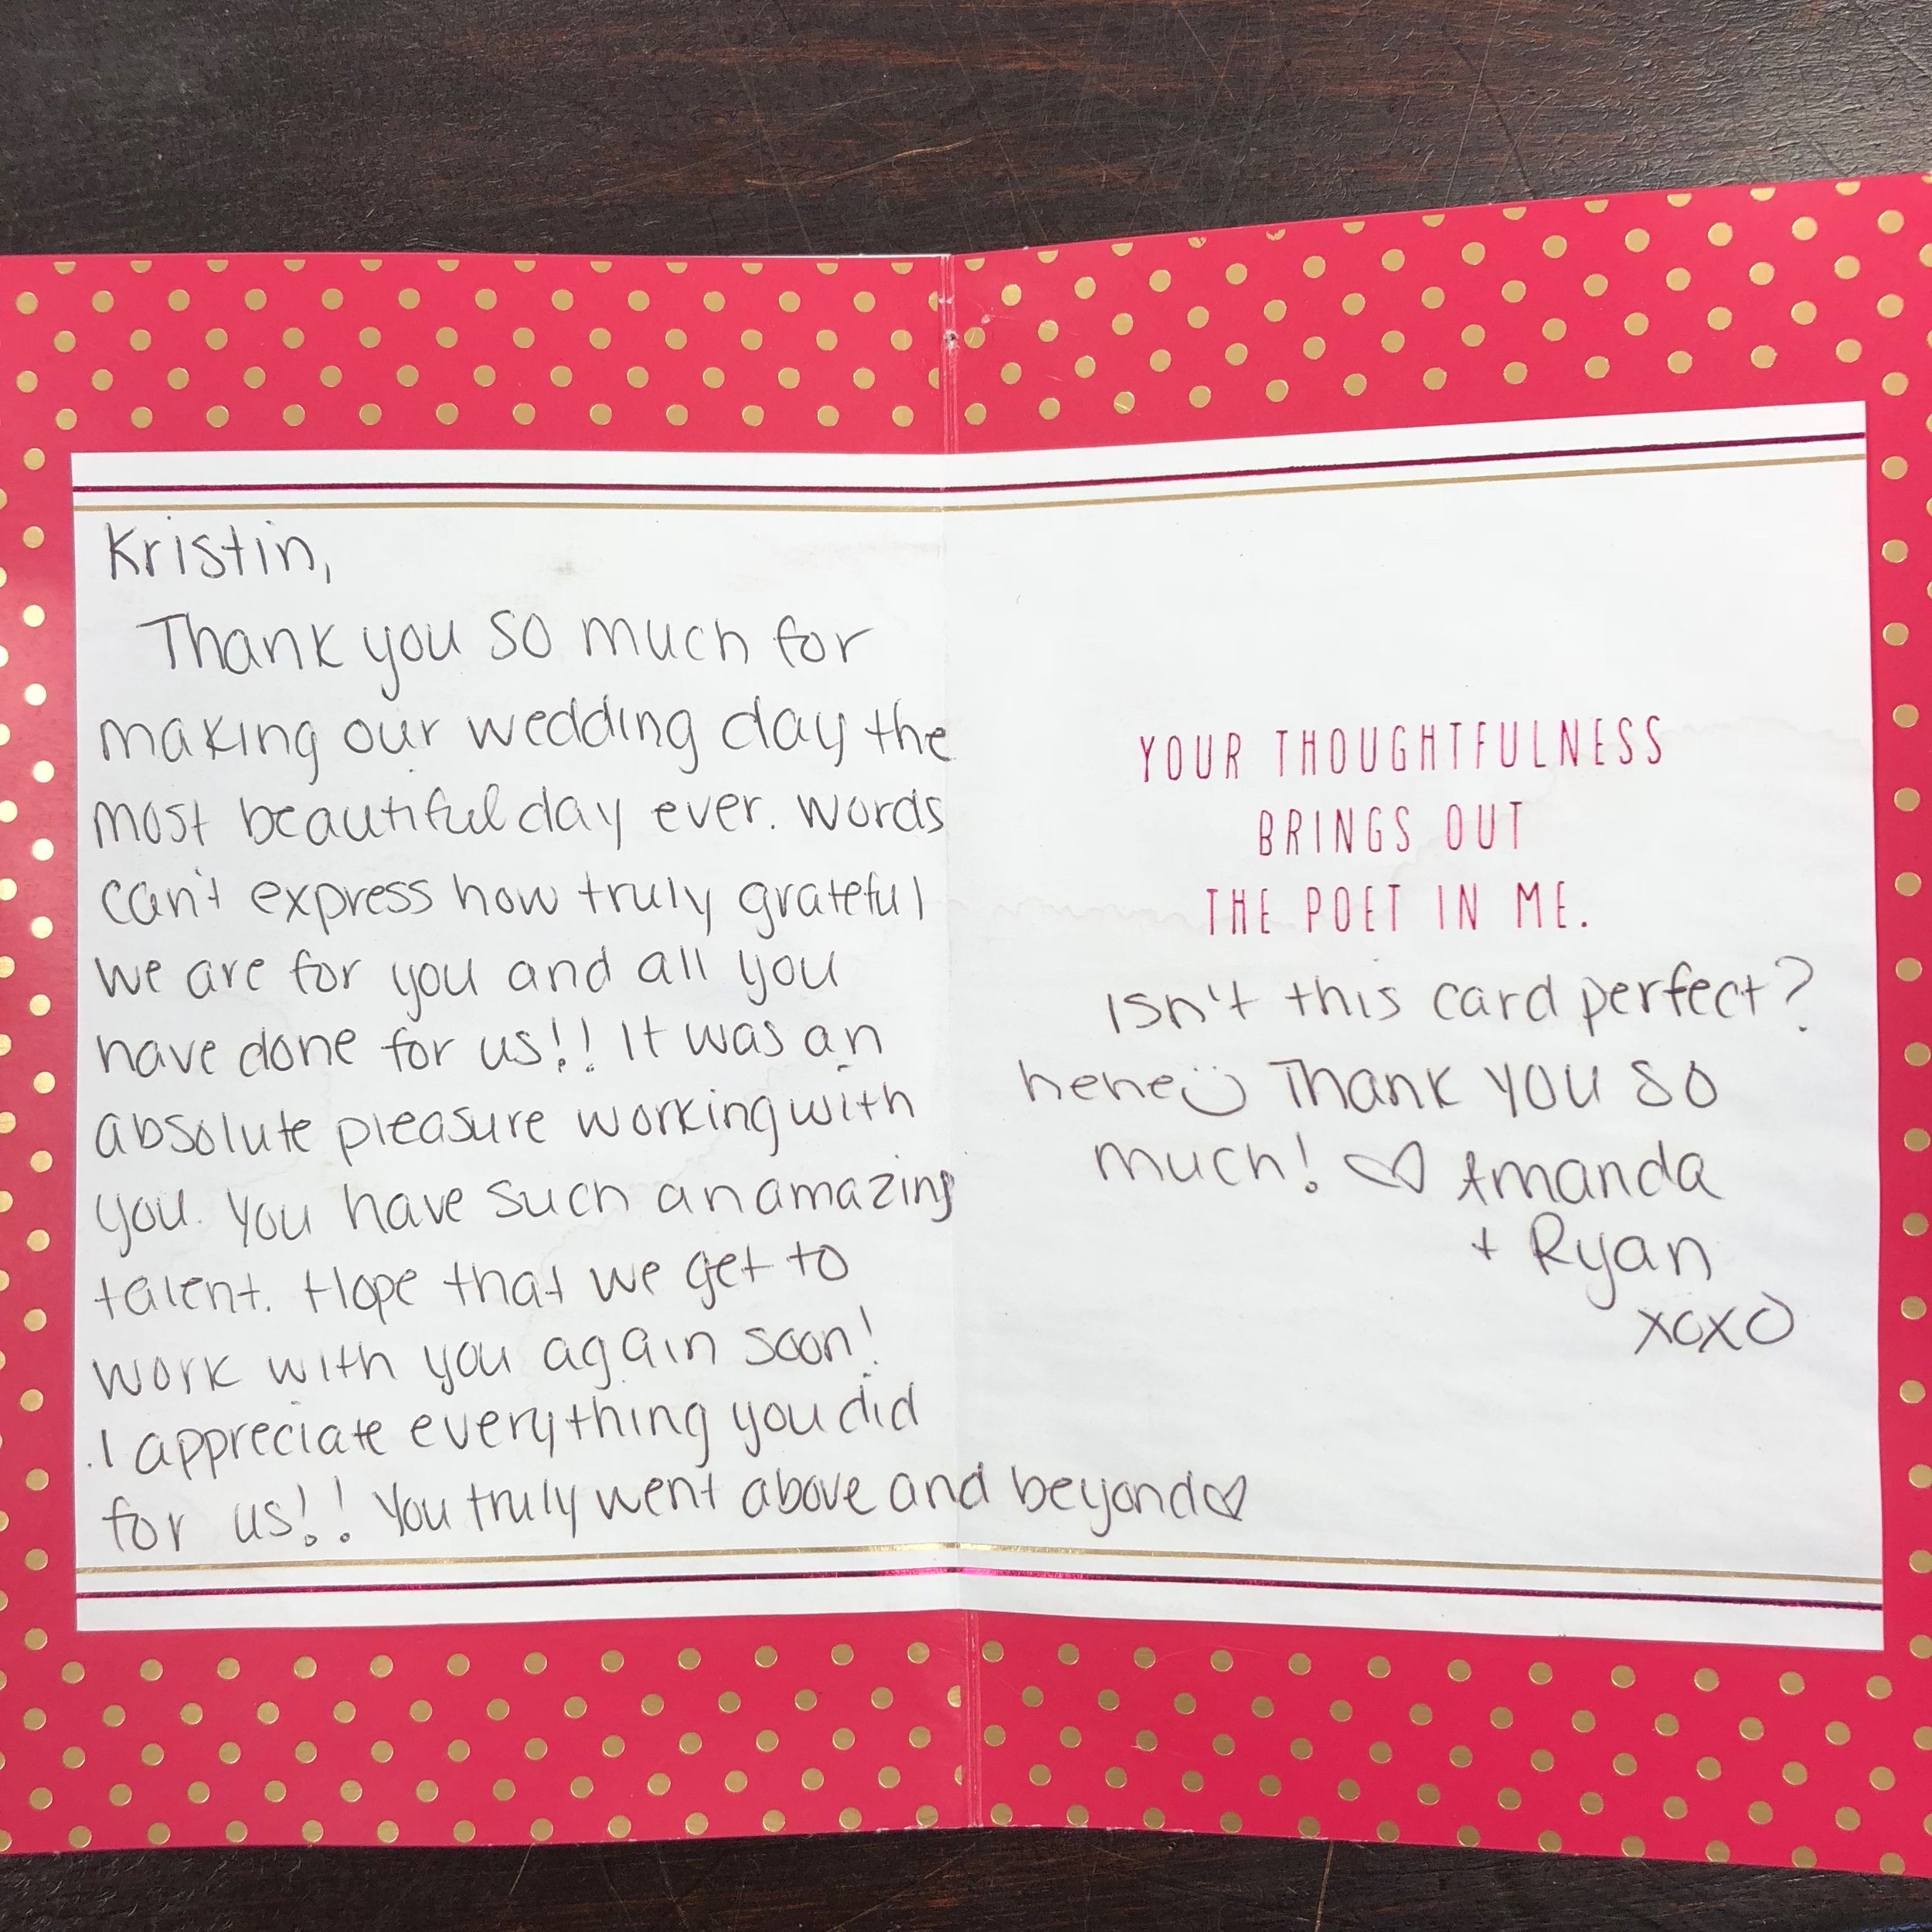 Kristin,
Thank you so much for
making our wedding day the
most beautiful day ever. Words
can't express how truly grateful
we are for you and all you
have done for us!! It was an
absolute pleasure working with
you. You have such an amazing
talent. Hope that we get to
work with you again soon!
I appreciate everything you did
for us!! You truly went above and beyond ♡
YOUR THOUGHTFULNESS
BRINGS OUT
THE POET IN ME.
Isn't this card perfect?
hehe ☺ Thank you so
much! ♡ Amanda
+ Ryan
xoxo